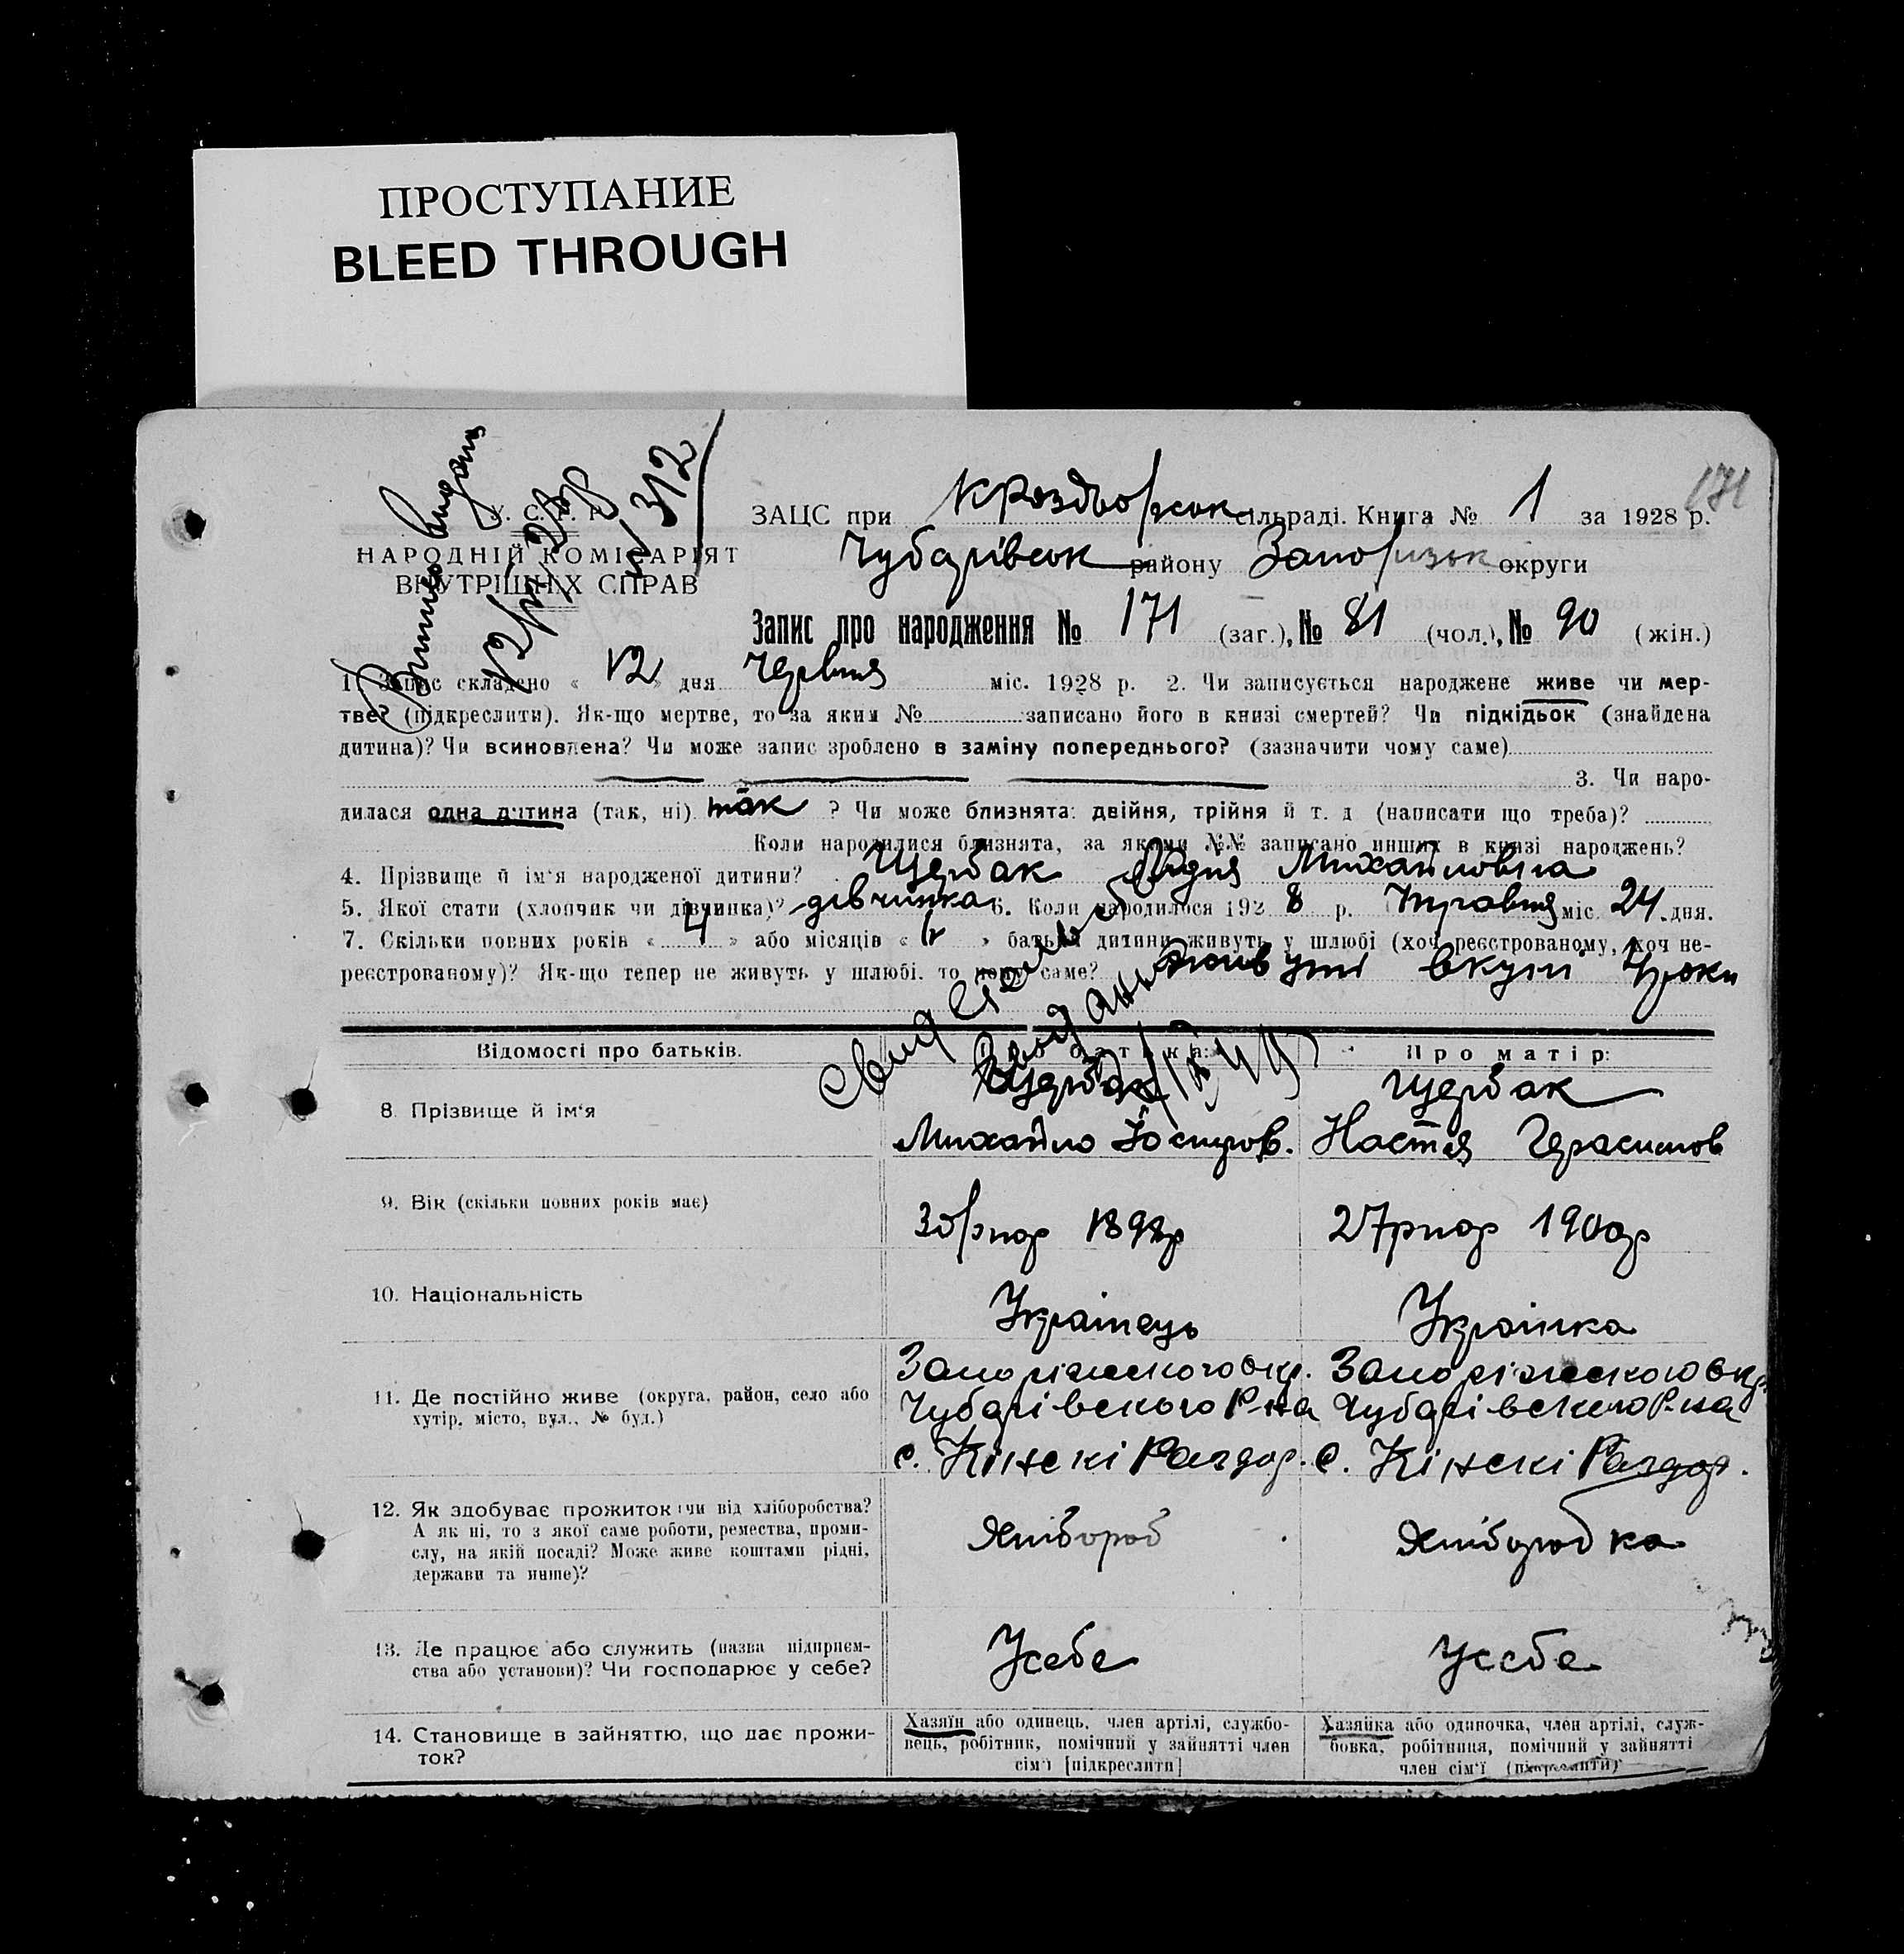 ПРОСТУПАНИЕ
BLEED THROUGH
171
Виписъ видань
№ 312
У. С. Р. Р.
НАРОДНІЙ КОМІСАРІЯТ
ВНУТРІШНІХ СПРАВ
ЗАЦС при К Роздорськ сільраді. Книга № 1 за 1928 р.
Чубарівськ району Запоризьк округи
Запис про народження № 171 (заг.), № 81 (чол.), № 90 (жін.)
1. Запис складено « 12 » дня Червня міс. 1928 р. 2. Чи записується народжене живе чи мер-
тве? (підкреслити). Як-що мертве, то за яким № записано його в книзі смертей? Чи підкідьок (знайдена
дитина)? Чи всиновлена? Чи може запис зроблено в заміну попереднього? (зазначити чому саме)
3. Чи наро-
дилася одна дитина (так, ні) так ? Чи може близнята: двійня, трійня й т. д (написати що треба)?
Коли народилися близнята, за якими №№ записано инших в книзі народжень?
4. Прізвище й ім'я народженої дитини? Щербак Лідія Михайловна
5. Якої стати (хлопчик чи дівчинка)? дівчинка 6. Коли народилося 192 8 р. Травня міс. 24 дня.
7. Скільки повних років « 4 » або місяців « » батьки дитини живуть у шлюбі (хоч реєстрованому, хоч не-
реєстрованому)? Як-що тепер не живуть у шлюбі, то чому саме? живуть вкупі
Свидетельство
Выдано
Відомості про батьків. Про батька: Про матір:
8. Прізвище й ім'я
Щербак
Михайло
Щербак
Настя Герасимов
9. Вік (скільки повних років має)
27 р нар 1900 р
10. Національність
Українець
Українка
11. Де постійно живе (округа, район, село або
хутір, місто, вул., № буд.)
Запоріжского окр.
Чубарівського Р-на
с. Кінскі Раздор.
Запоріжского окр.
Чубарівского Р-на
с. Кінскі Раздор.
12. Як здобуває прожиток: чи від хліборобства?
А як ні, то з якої саме роботи, ремества, проми-
слу, на якій посаді? Може живе коштами рідні,
держави та инше)?
Хлібороб
Хліборобка
13. Де працює або служить (назва підприєм-
ства або установи)? Чи господарює у себе?
Усебе
Усебе
14. Становище в зайняттю, що дає прожи-
ток?
Хазяїн або одинець, член артілі, службо-
вець, робітник, помічний у зайнятті член
сім'ї [підкреслити]
Хазяйка або одиночка, член артілі, служ-
бовка, робітниця, помічний у зайнятті
член сім'ї (підкреслити)